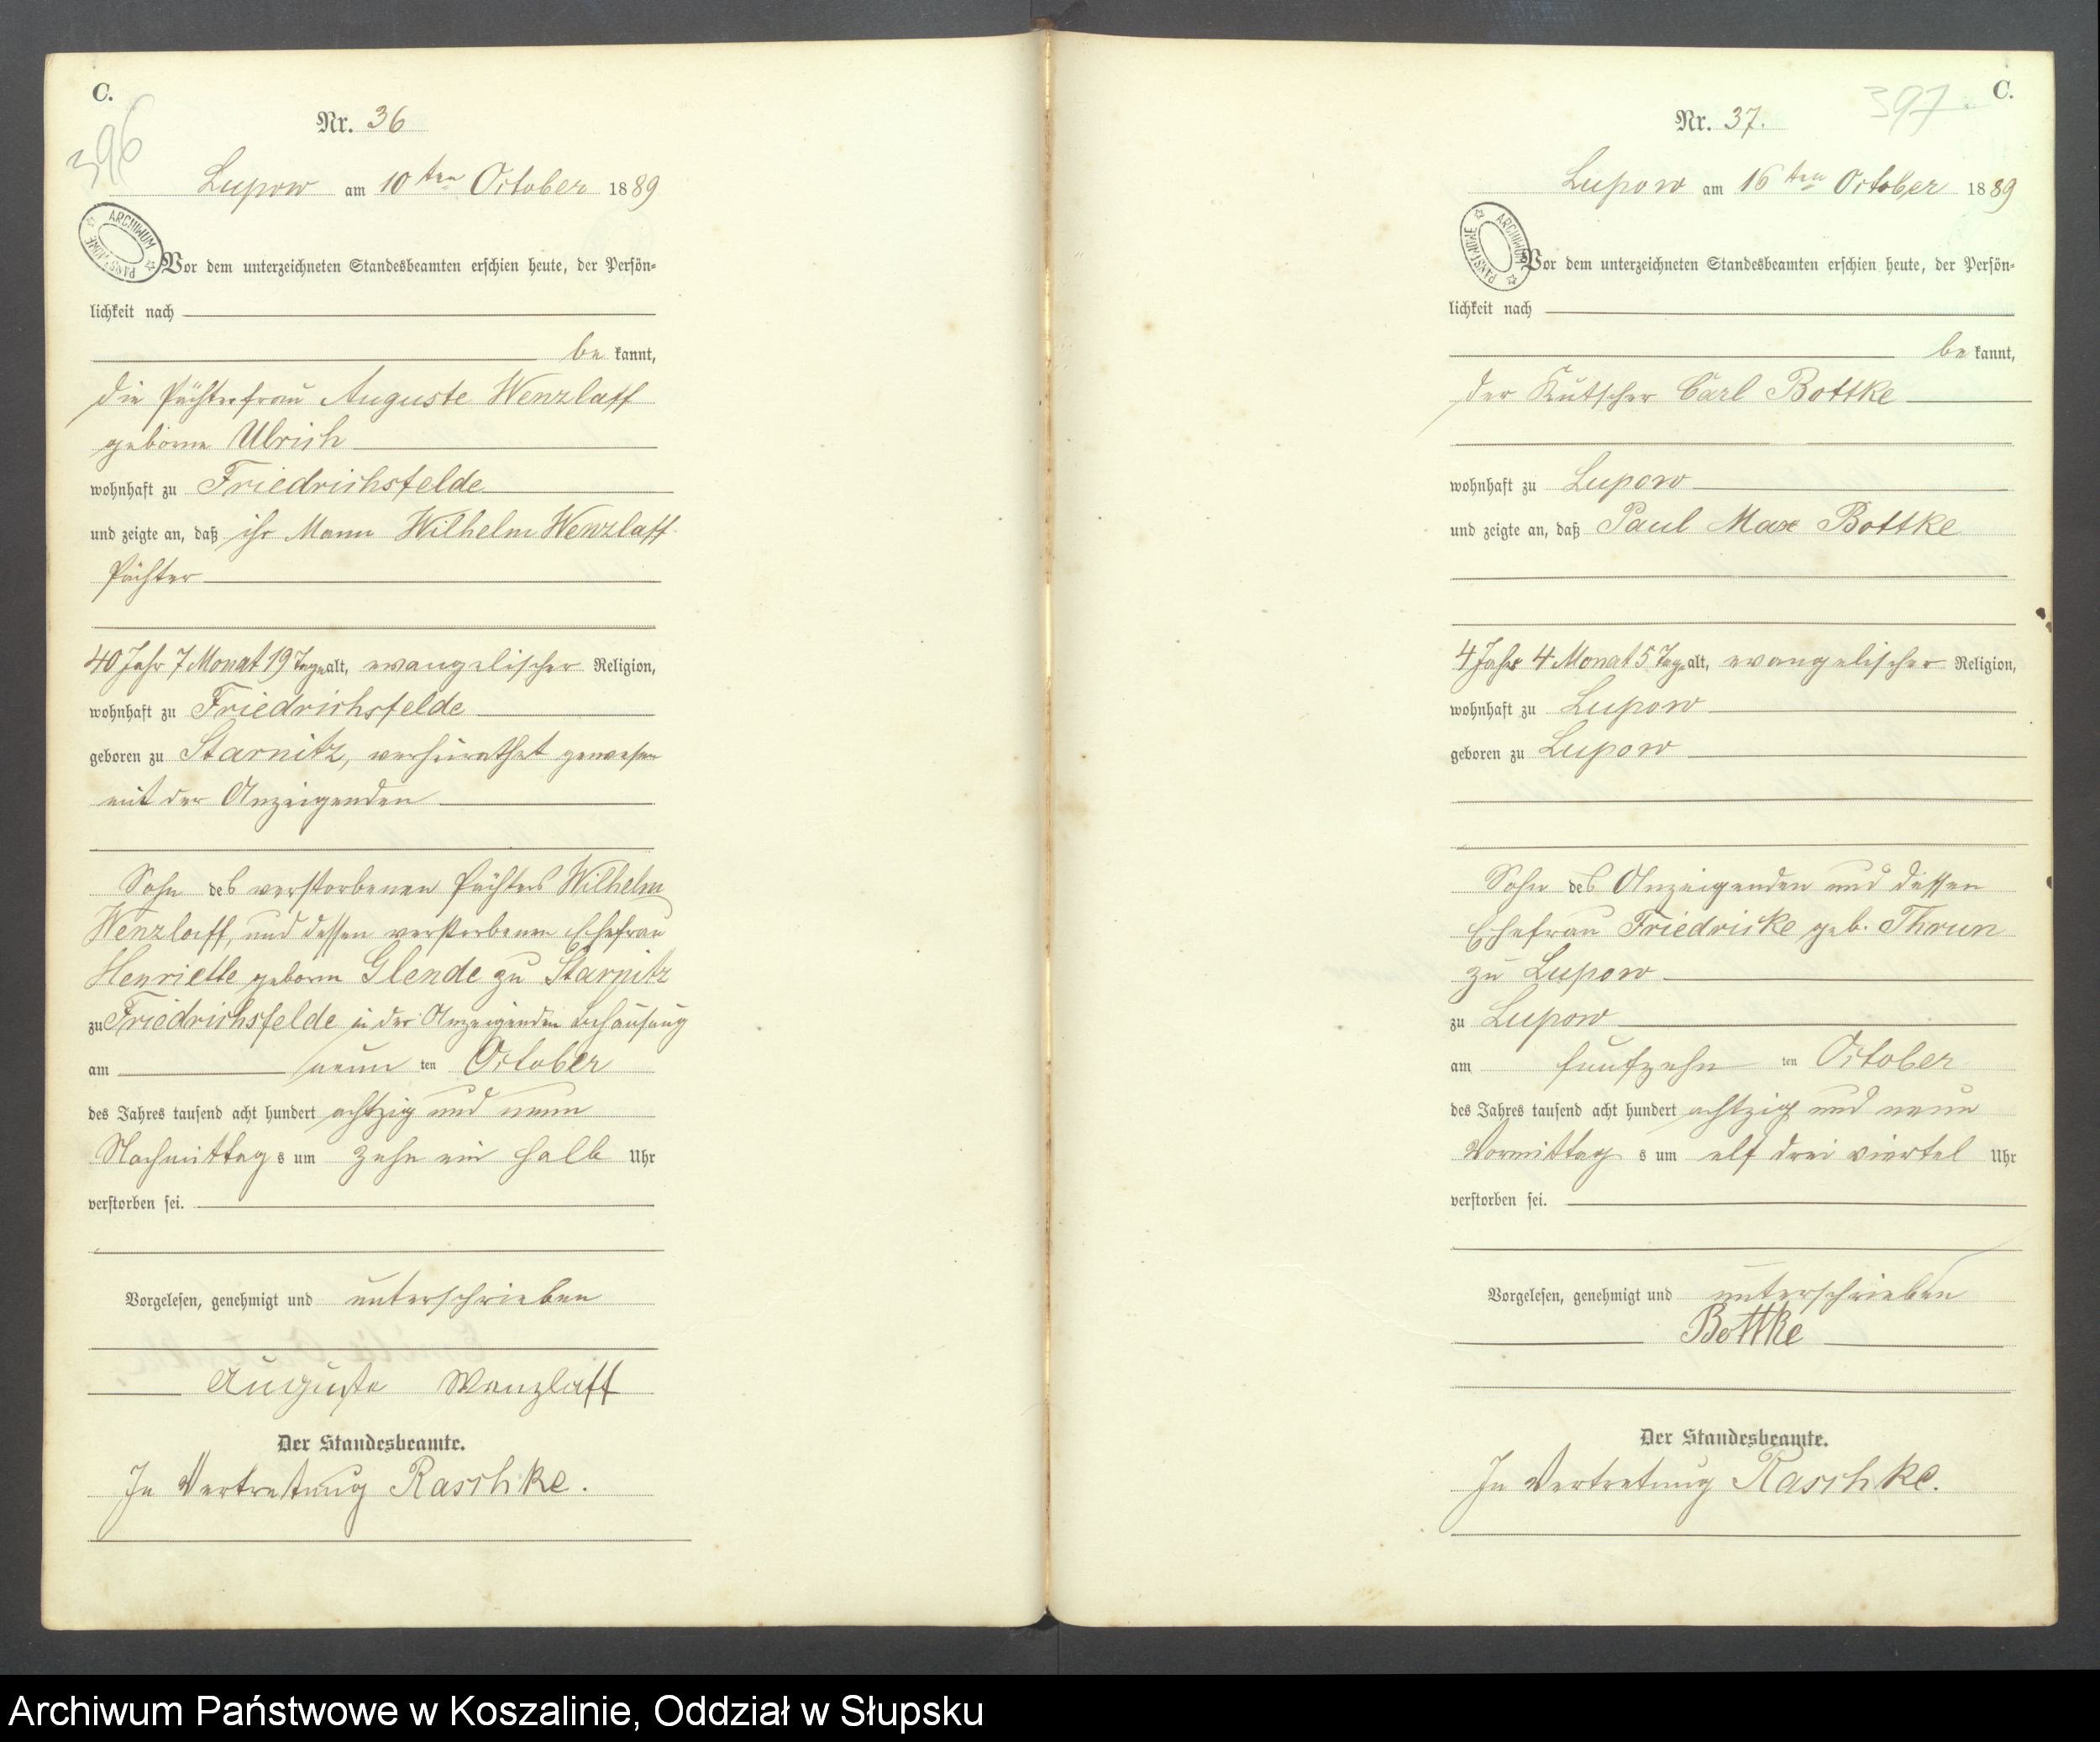 C.
396
Nr. 36
Lupow am 10ten October 1889
ARCHIWUM PAŃSTWOWE
Vor dem unterzeichneten Standesbeamten erschien heute, der Persön-
lichkeit nach
bekannt,
die Pächterfrau Auguste Wenzlaff
geborne Ulrich
wohnhaft zu Friedrichsfelde
und zeigte an, daß ihr Mann Wilhelm Wenzlaff
Pächter
40 Jahr 7 Monat 19 Tage alt, evangelischer Religion,
wohnhaft zu Friedrichsfelde
geboren zu Starnitz, verheirathet gewesen
mit der Anzeigenden
Sohn des verstorbenen Pächters Wilhelm
Wenzlaff, und dessen verstorbenen Ehefrau
Henriette geborne Glende zu Starnitz
zu Friedrichsfelde in der Anzeigenden Behausung
am neun ten October
des Jahres tausend acht hundert achtzig und neun
Nachmittags um zehn ein halb Uhr
verstorben sei.
Vorgelesen, genehmigt und unterschrieben
Auguste Wenzlaff
Der Standesbeamte.
In Vertretung Raschke.
C.
397
Nr. 37.
Lupow am 16ten October 1889
ARCHIWUM PAŃSTWOWE
Vor dem unterzeichneten Standesbeamten erschien heute, der Persön-
lichkeit nach
bekannt,
der Kutscher Carl Bottke
wohnhaft zu Lupow
und zeigte an, daß Paul Max Bottke
4 Jahr 4 Monat 5 Tage alt, evangelischer Religion,
wohnhaft zu Lupow
geboren zu Lupow
Sohn des Anzeigenden und dessen
Ehefrau Friedricke geb. Thrun
zu Lupow
zu Lupow
am funfzehn ten October
des Jahres tausend acht hundert achtzig und neun
Vormittags um elf drei viertel Uhr
verstorben sei.
Vorgelesen, genehmigt und unterschrieben
Bottke
Der Standesbeamte.
In Vertretung Raschke.
Archiwum Państwowe w Koszalinie, Oddział w Słupsku